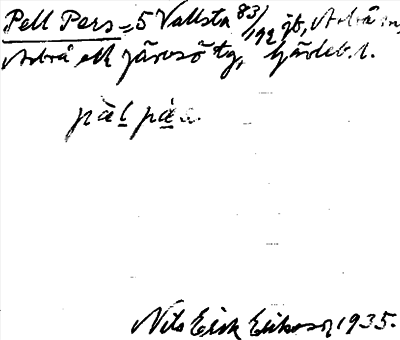 Pell Pers = 5 Vallsta 83/192 jb, Arbrå sn,
Arbrå o Järvsö tg, Gävleb. l.
pàl pà
Nils Erik Eriksson 1935.